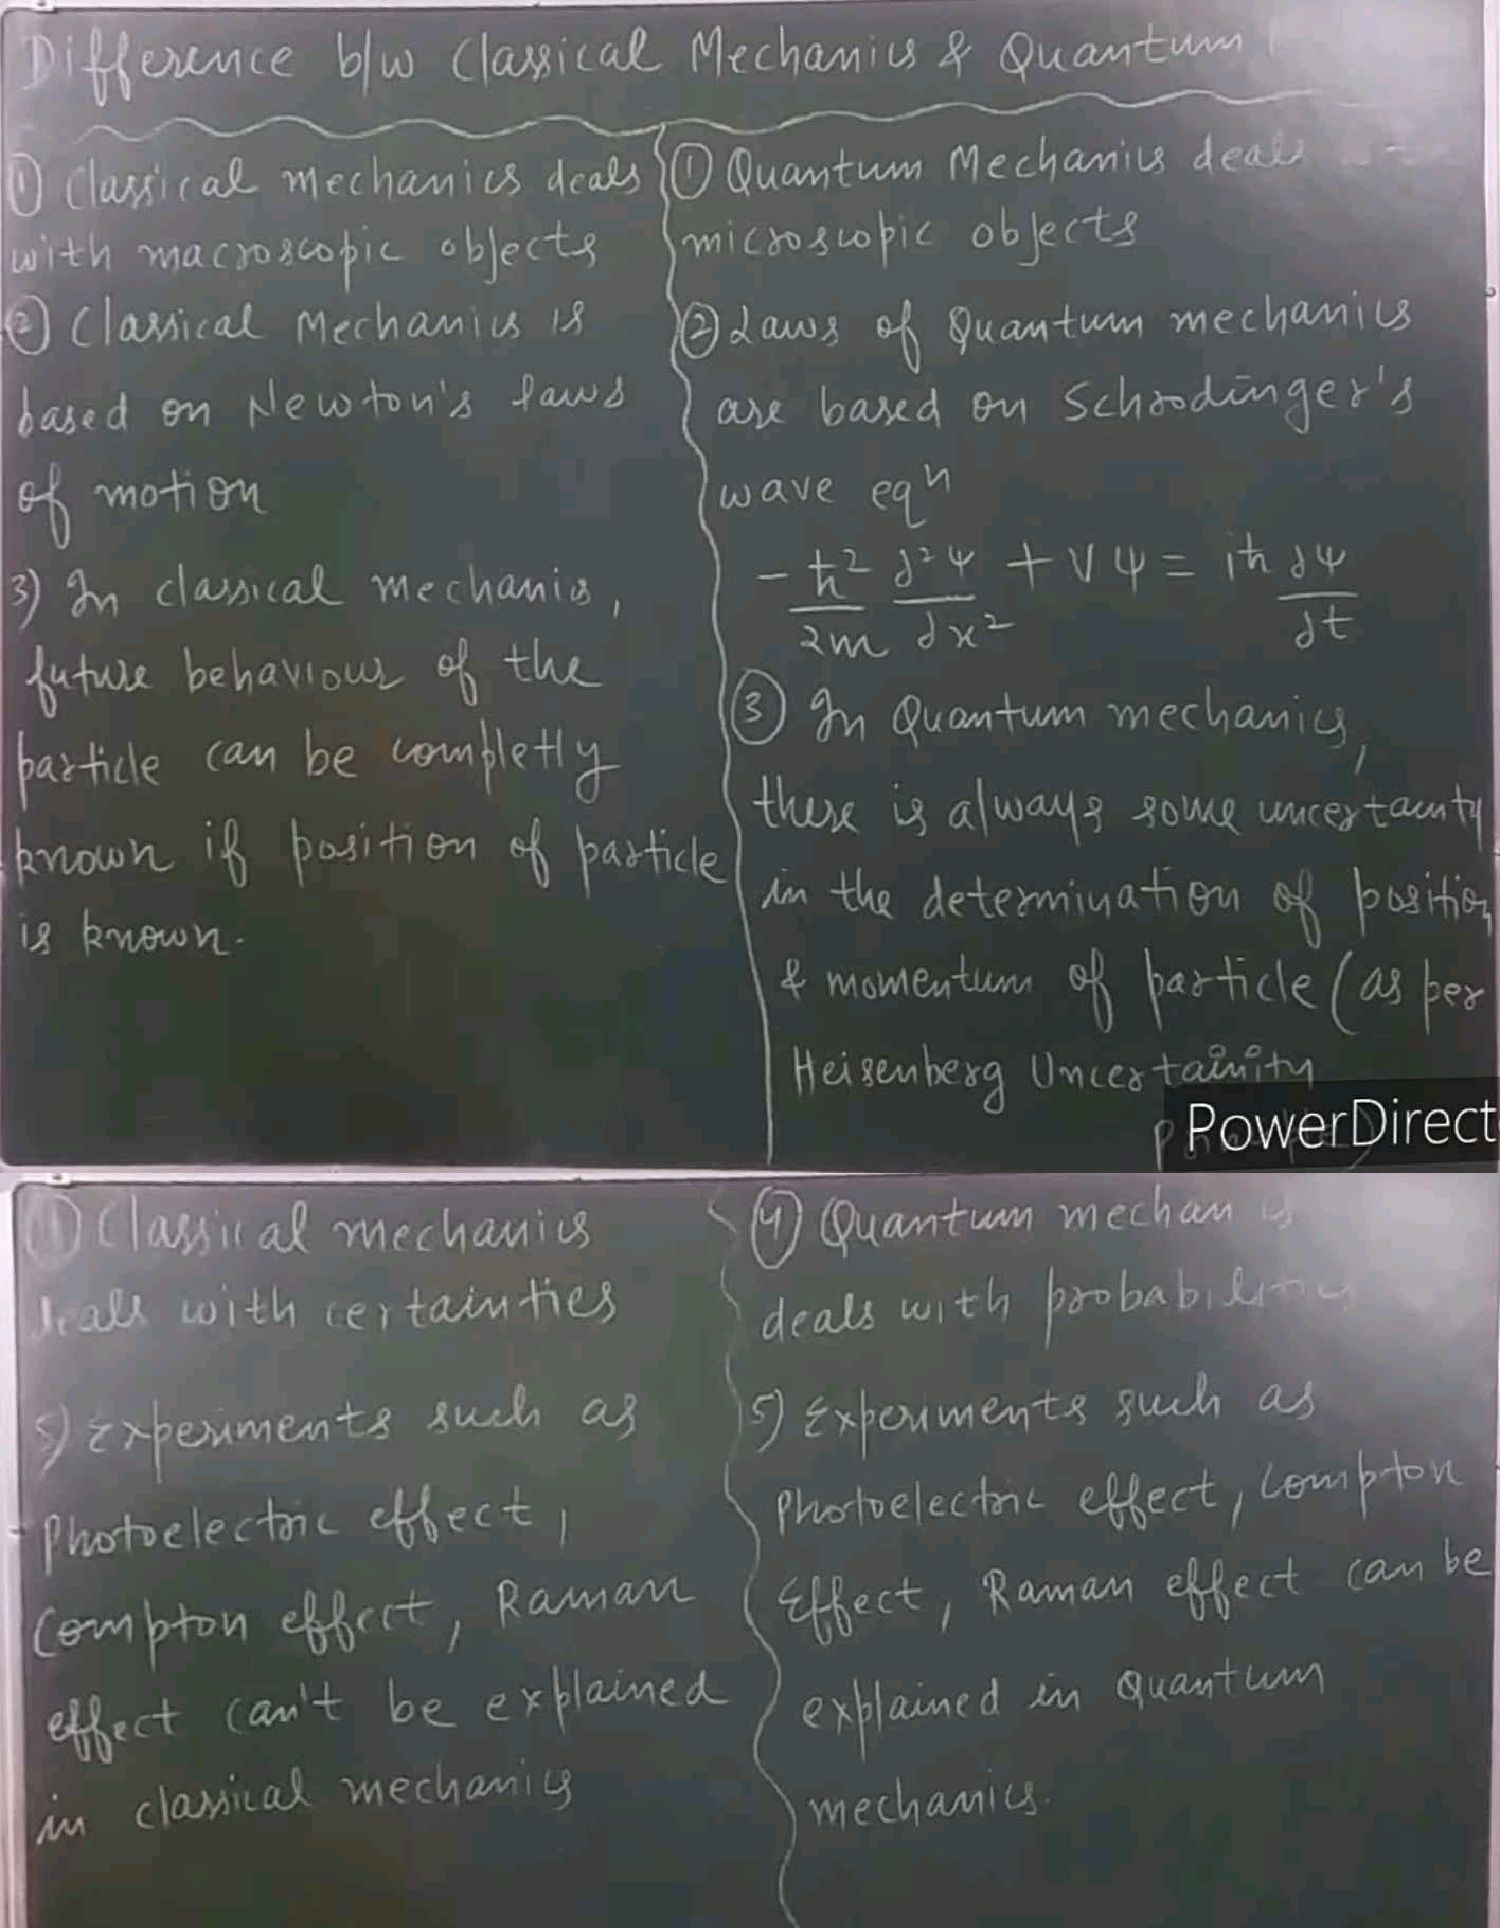 Difference b/w Classical Mechanics & Quantum
① Classical mechanics deals
with macroscopic objects
② Classical Mechanics is
based on Newton's laws
of motion
3) In classical mechanics,
future behaviour of the
particle can be completly
known if position of particle
is known.
① Quantum Mechanics deals
microscopic objects
② Laws of Quantum mechanics
are based on Schrodinger's
wave eqⁿ
-ħ²/2m ∂²ψ/∂x² + Vψ = iħ ∂ψ/∂t
③ In Quantum mechanics,
there is always some uncertaunty
in the determination of position
& momentum of particle (as per
Heisenberg Uncertainity
PowerDirect
Classical mechanics
deals with certainties
5) Experiments such as
Photoelectric effect,
Compton effect, Raman
effect can't be explained
in classical mechanics
④ Quantum mechanics
deals with probabilities
5) Experiments such as
Photoelectric effect, Compton
Effect, Raman effect can be
explained in Quantum
mechanics.